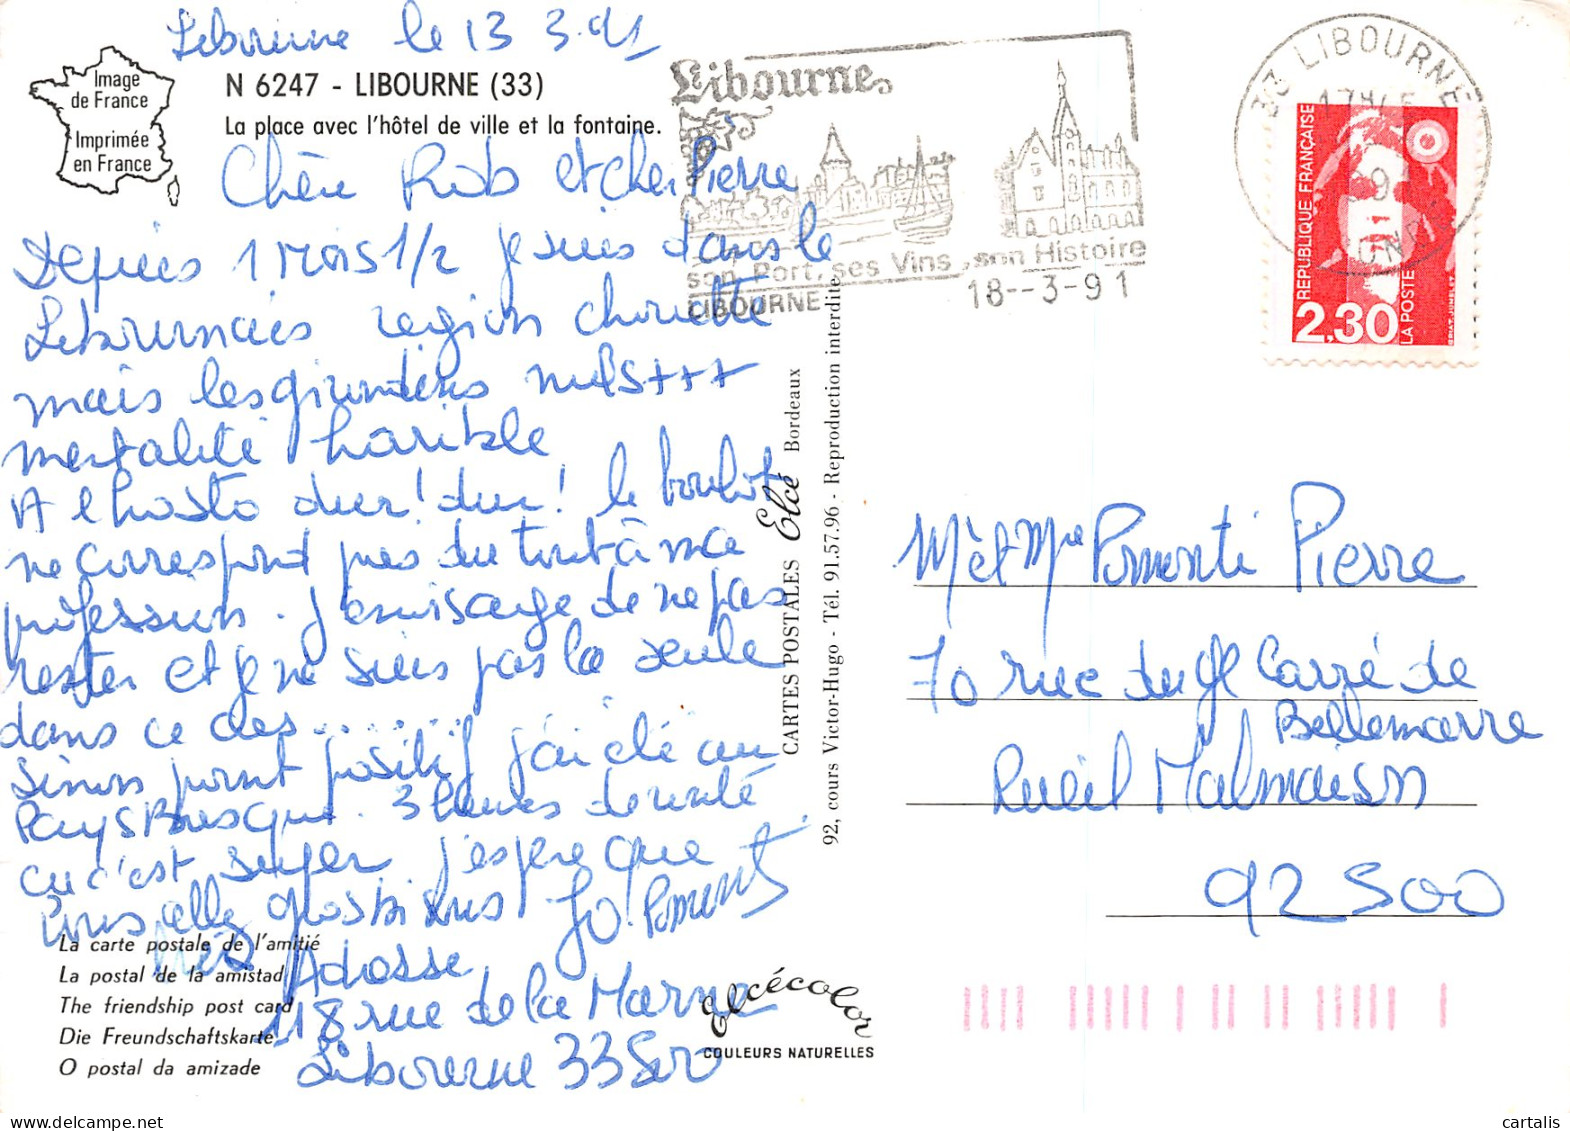 Libourne le 13 3.91
Image
de France
Imprimée
en France
N 6247 - LIBOURNE (33)
La place avec l'hôtel de ville et la fontaine.
Chère et cher Pierre
Depuis 1 mois 1/2 je suis dans le
Libournais région chouette
mais les girondins nuls +++
mentalité horible
A l'hosto dur! dur! le boulot
ne correspond pas du tout à ma
profession. J'envisage de ne pas
rester et je ne suis pas la seule
dans ce cas......
Sinon point positif j'ai été au
Pays Basque. 3 heures de route
c'est super j'espère que
vous allez Gros bisous Jo. Pomonti
Adresse
118 rue de la Marne
Libourne 33500
La carte postale de l'amitié
La postal de la amistad
The friendship post card
Die Freundschaftskarte
O postal da amizade
Elcécolor
COULEURS NATURELLES
CARTES POSTALES Elcé Bordeaux
92, cours Victor-Hugo - Tél. 91.57.96 - Reproduction interdite
Libourne
son Port, ses Vins, son Histoire
LIBOURNE 18--3-91
33 LIBOURNE
RÉPUBLIQUE FRANÇAISE
2,30
LA POSTE
Mr et Mme Pomonti Pierre
70 rue du Gl Carré de
Bellemarre
Rueil Malmaison
92500
cartalis